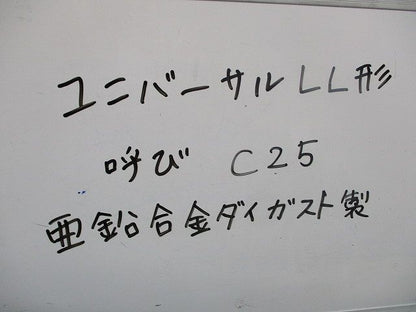 ユニバーサルLL形
呼び C25
亜鉛合金ダイガスト製